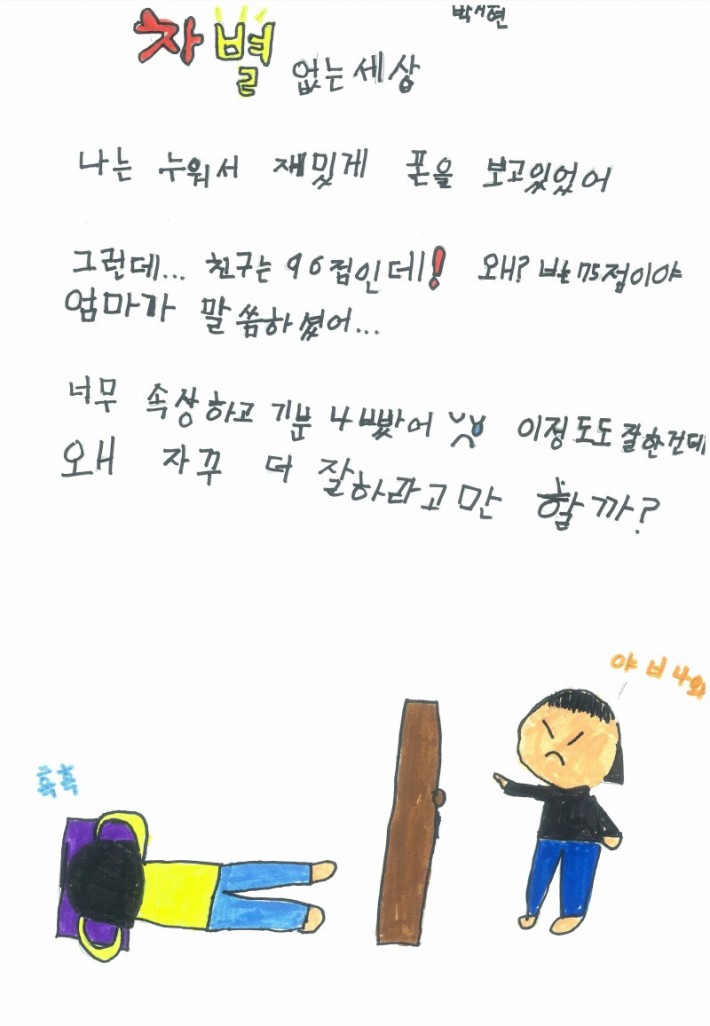 박서현
차별 없는세상
나는 누워서 재밌게 폰을 보고있었어
그런데... 친구는 96점인데! 왜? 넌 75점이야
엄마가 말씀하셨어...
너무 속상하고 기분 나빴어 이정도도 잘한건데
왜 자꾸 더 잘하라고만 할까?
야 너 나와
흑흑